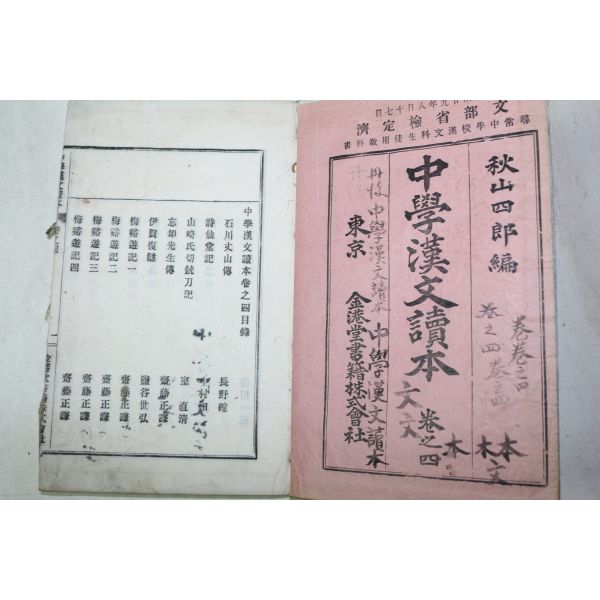 文部省檢定濟
尋常中學校漢文科生徒用教科書
秋山四郎編
中學漢文讀本
卷之四
東京
金港堂書籍株式會社
中學漢文讀本
中學漢文讀本
文文
卷卷之四
卷之四
本
本
木文
中學漢文讀本卷之四目錄
石川丈山傳 長野確
詩仙堂記
山崎氏切銃刀記 室直清
忘却先生傳
伊賀復讎 鹽谷世弘
梅谿遊記一 齋藤正謙
梅谿遊記二 齋藤正謙
梅谿遊記三 齋藤正謙
梅谿遊記四 齋藤正謙